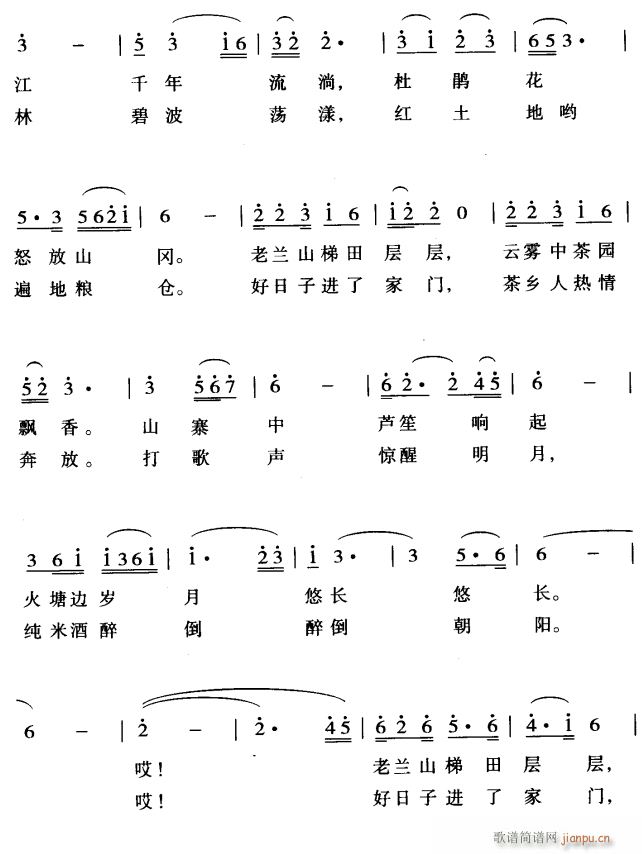 3 – | 5 3 i6 | 32 2· | 3 i 2 3 | 653· |
江 千年 流淌，杜鹃 花
林 碧波 荡漾，红土 地哟
5·3 562i | 6 – | 2 2 3 i 6 | i2 2 0 | 2 2 3 i 6 |
怒放山 冈。 老兰山梯田 层层， 云雾中茶园
遍地粮 仓。 好日子进了 家门， 茶乡人热情
52 3· | 3 567 | 6 – | 6 2· 2 45 | 6 – |
飘香。 山寨 中 芦笙 响起
奔放。 打歌 声 惊醒 明月，
3 6 i i36i | i· 23 | i 3· | 3 5·6 | 6 –
火塘边岁 月 悠长 悠 长。
纯米酒醉 倒 醉倒 朝 阳。
6 – | 2 – | 2· 45 | 6 2 6 5·6 | 4·i 6 |
哎！ 老兰山梯田层 层，
哎！ 好日子进了家 门，
歌谱简谱网 jianpu.cn